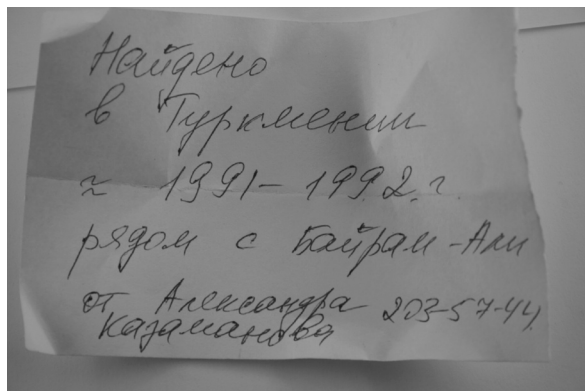 Найдено
в Туркмении
≈ 1991-1992.г.
рядом с Байрам-Али
от Александра 203-57-44.
Казаманова